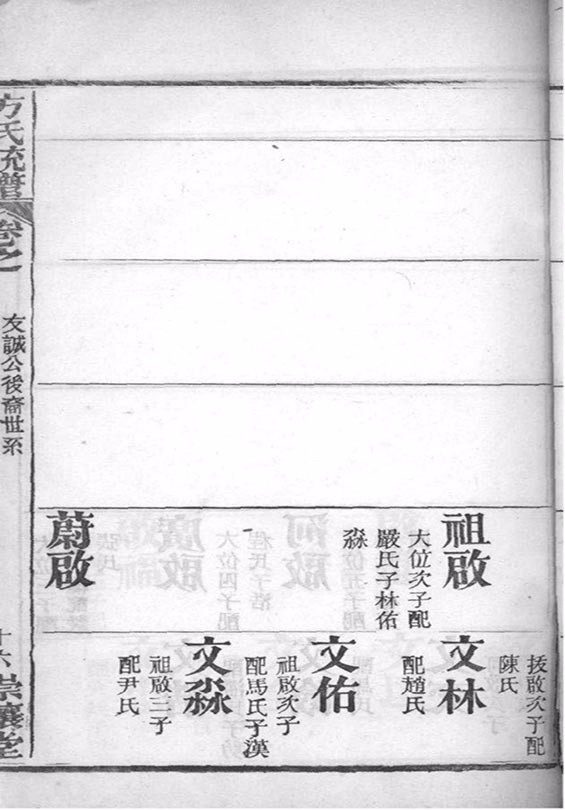 祖啟
大位次子配
嚴氏子林佑
淼
蔚啟
扳啟次子配
陳氏
文林
配趙氏
文佑
祖啟次子
配馬氏子漢
文淼
祖啟三子
配尹氏
方氏統譜
卷之一
友誠公後裔世系
十六
崇讓堂